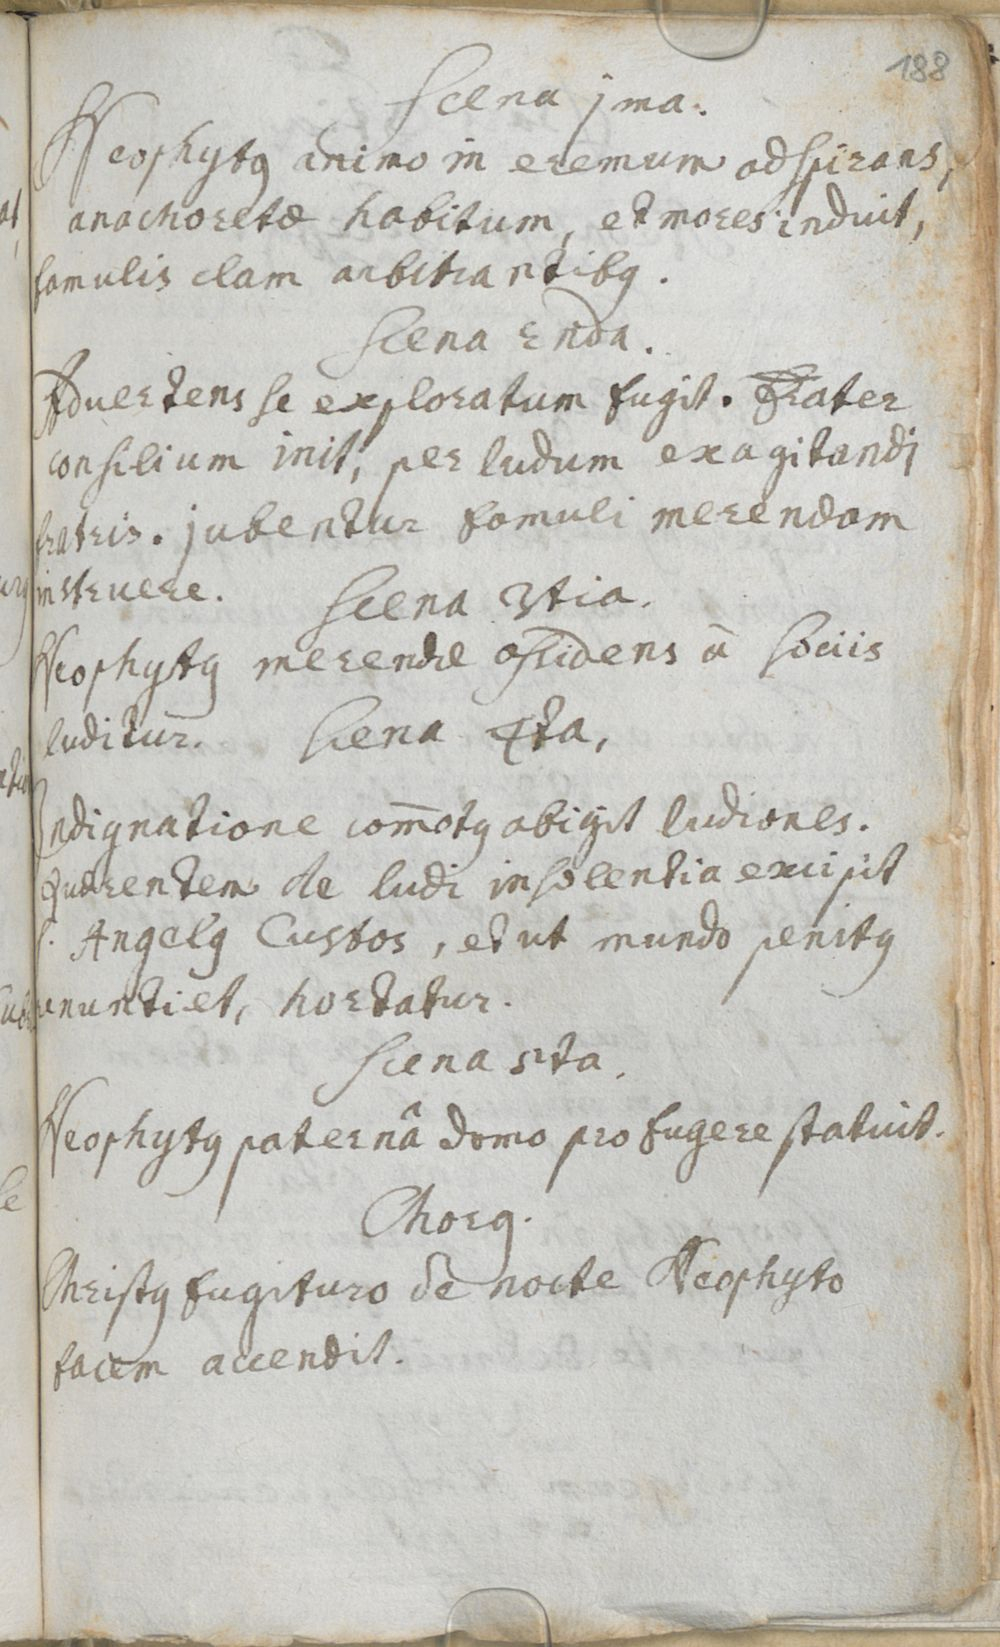 188
Scena jma.
Neophytꝯ animo in eremum adspirans,
anachoretæ habitum, et mores induit,
famulis clam arbitrantibꝯ.
Scena 2nda.
Advertens se exploratum fugit. Frater
consilium init, per ludum exagitandj
fratris. jubentur famuli merendam
instruere. Scena 3tia.
Neophytꝯ merendæ assidens à sociis
luditur. Scena 4ta,
Indignatione com̄otꝯ abigit ludiones.
Quærentem de ludi insolentia excipit
S. Angelꝯ Custos, et ut mundo penitꝯ
renuntiet, hortatur.
Scena 5ta.
Neophytꝯ paternâ domo profugere statuit.
Chorꝯ.
Christꝯ fugituro de nocte Neophyto
facem accendit.